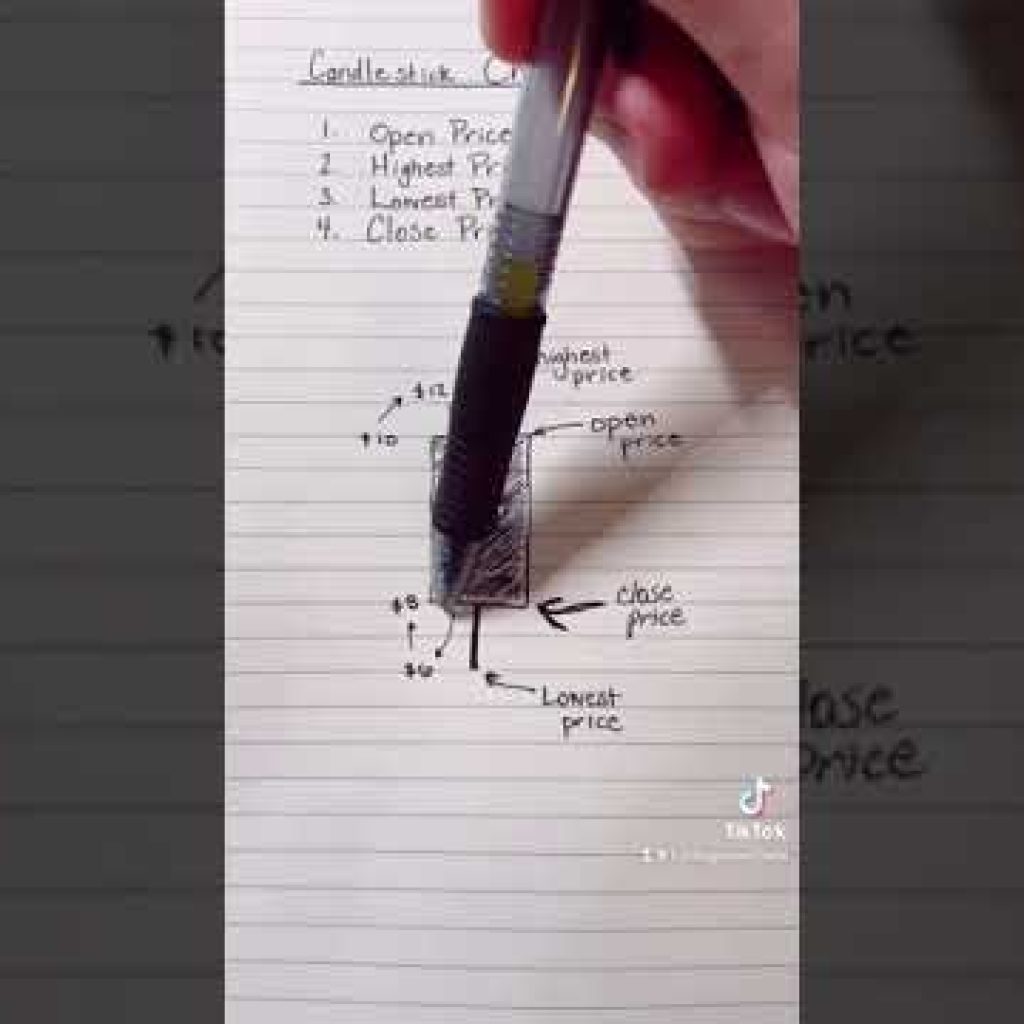 Candlestick C
1. Open Price
2 Highest Pr
3 Lowest Pr
4. Close Pr
highest
price
$12
$10
open
price
$8
close
price
$6
Lowest
price
TikTok
$10
en
rice
lase
price